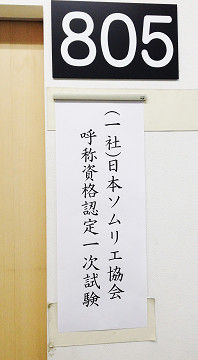 805
(一社)日本ソムリエ協会
呼称資格認定一次試験